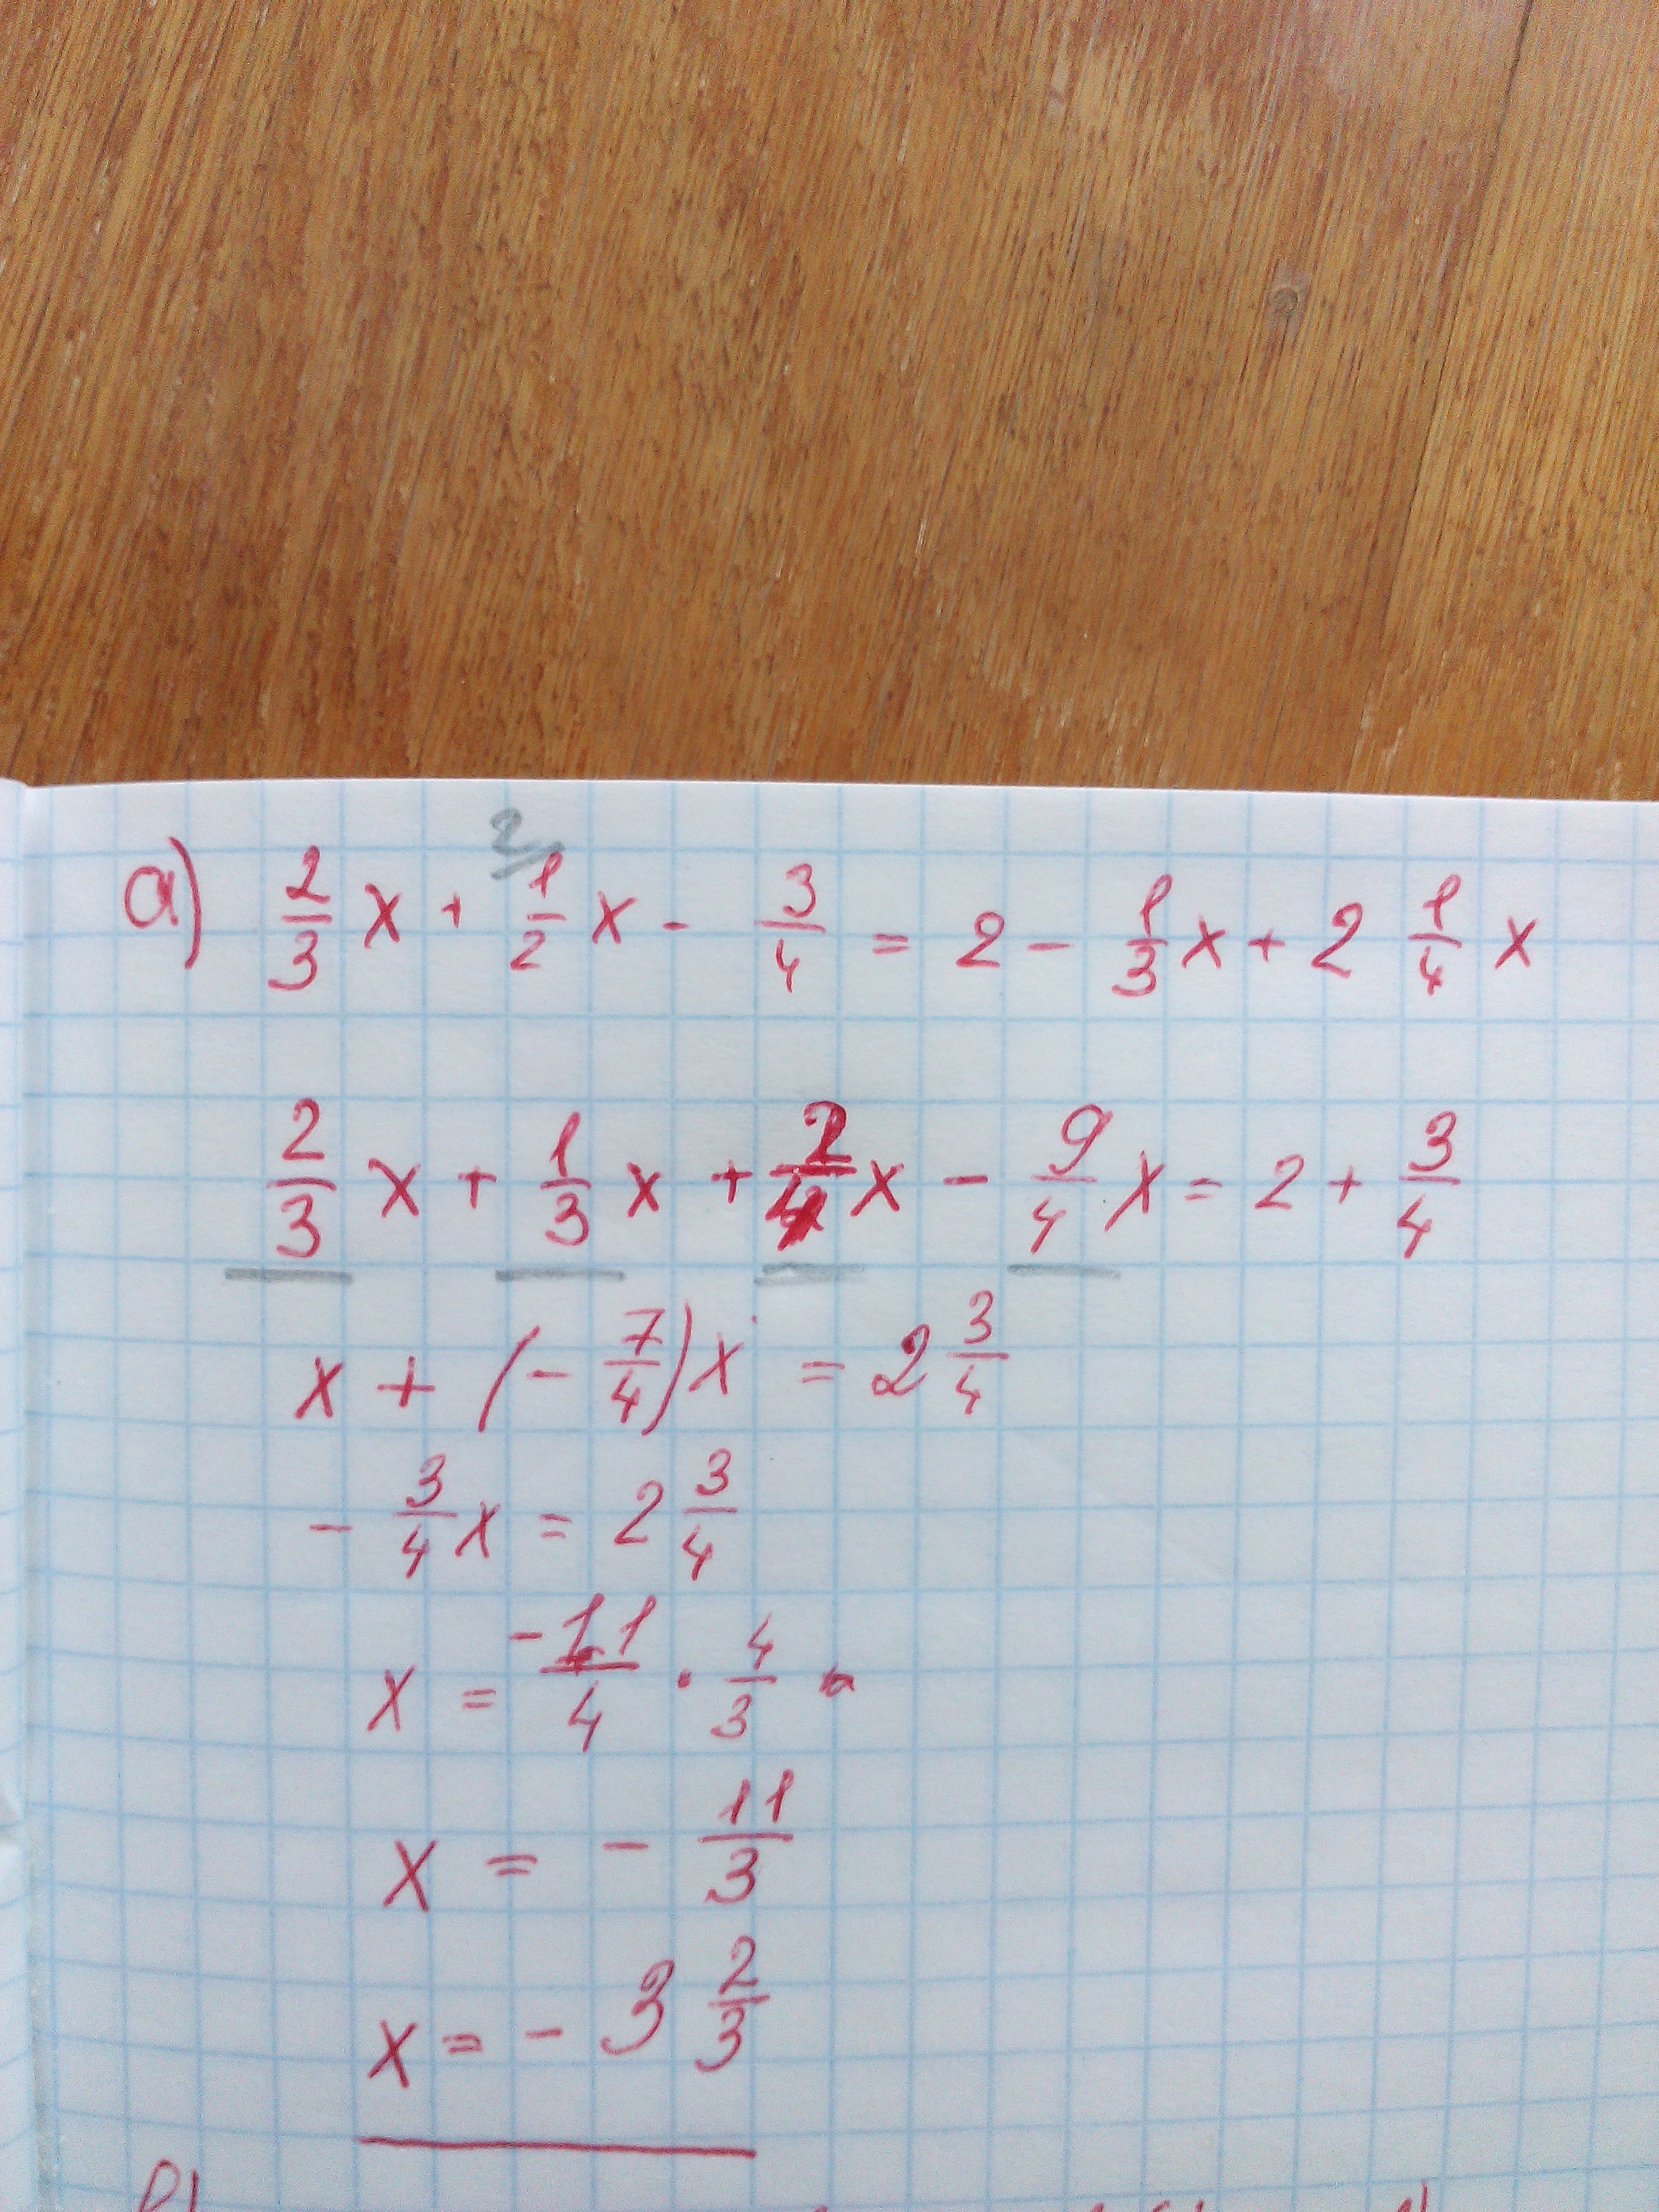 а) 2/3 x + 1/2 x - 3/4 = 2 - 1/3 x + 2 1/4 x
2/3 x + 1/3 x + 2/4 x - 9/4 x = 2 + 3/4
x + (- 7/4) x = 2 3/4
- 3/4 x = 2 3/4
x = -11/4 · 4/3
x = - 11/3
x = - 3 2/3